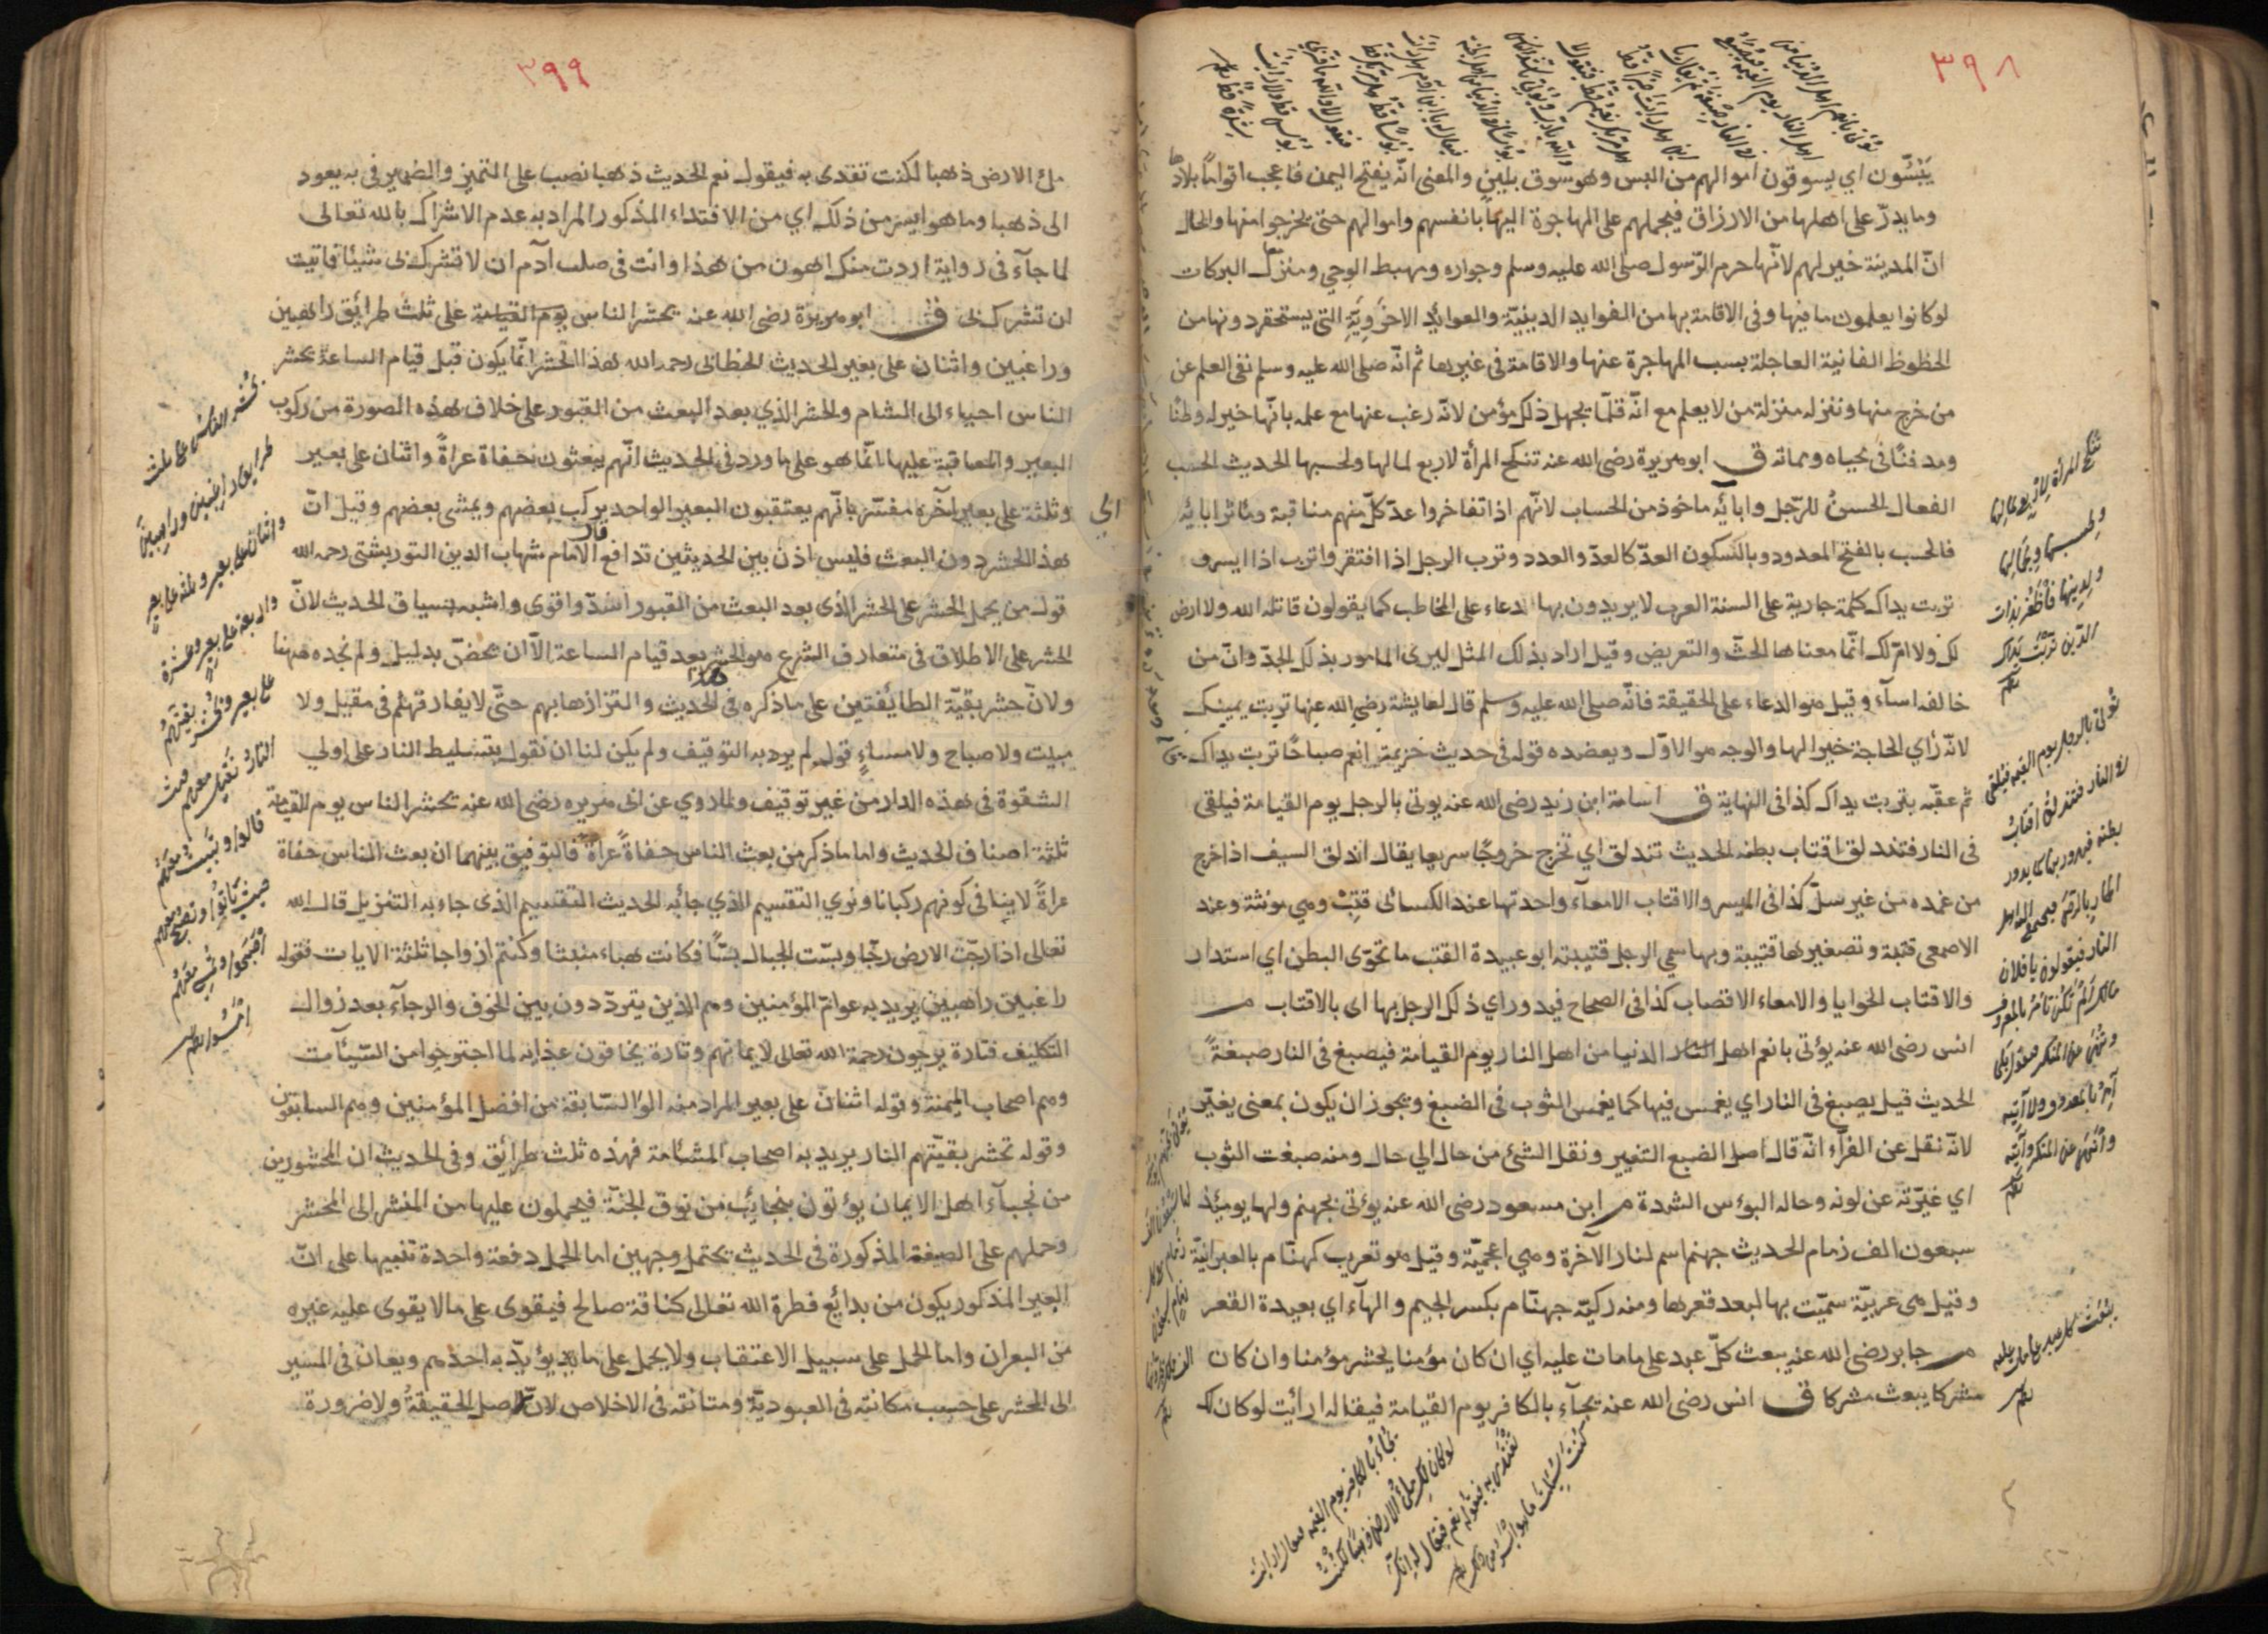 ٣٩٨
يَبُسّون اي يسوقون اموالهم من البس وهو سوق بلين والمعنى انّه يفتح اليمن فاعجب اقواما بلادها
وما يدرّ على اهلها من الارزاق فيحملهم على المهاجرة اليها بانفسهم واموالهم حتى يخرجوا منها والحال
انّ المدينة خير لهم لانّها حرم الرّسول صلى الله عليه وسلم وجواره ومهبط الوحي ومنزل البركات
لو كانوا يعلمون ما فيها وفي الاقامة بها من الفوايد الدينيّة والعوائد الاخرويّة التي يستحقر دونها من
الحظوظ الفانية العاجلة بسبب المهاجرة عنها والاقامة في غيرها ثم انّه صلى الله عليه وسلم نفى العلم عن
من خرج منها ونزله منزلة من لا يعلم مع انّه قلّما يجهل ذلك مؤمن لانّه رغب عنها مع علمه بانّها خير له وطنا
ومدفنًا في محياه ومماته ق ابو هريرة رضى الله عنه تنكح المرأة لاربع لمالها ولحسبها الحديث الحسب
الفعال الحسنُ للرّجل وابائه ماخوذ من الحساب لانّهم اذا تفاخروا عدّ كلّ منهم مناقبه ومآثر ابائه
فالحسب بالفتح المعدود وبالسكون العدّ كالعدّ والعدد وترب الرجل اذا افتقر واترب اذا ايسر و
تربت يداك كلمة جارية على السنة العرب لا يريدون بها الدعاء على المخاطب كما يقولون قاتله الله ولا ارض
لك ولا امّ لك انّما معناها الحثّ والتعريض وقيل اراد بذلك المثل ليرى المامور بذلك الجدّ وانّ من
خالفه اسآء وقيل هو الدعاء على الحقيقة فانّه صلى الله عليه وسلم قال لعايشة رضي الله عنها تربت يمينك
لانّه رأي الحاجة خيرا لها والوجه هو الاوّل ويعضده قوله في حديث خزيمة انعم صباحًا تربت يداك
ثم عقّبه بتربت يداك كذا في النهاية ق اسامة ابن زيد رضى الله عنه يوتى بالرجل يوم القيامة فيلقى
في النار فتندلق اقتاب بطنه الحديث تندلق اي تخرج خروجًا سريعا يقال اندلق السيف اذا خرج
من غمده من غير سلّ كذا في الميسر والاقتاب الامعآء واحدتها عند الكسائى قتبْ وهي مونثة وعند
الاصمعى قتبة وتصغيرها قتيبة وبها سمي الرجل قتيبة ابو عبيدة القتب ما تحوّى البطن اي استدار
والاقتاب الحوايا والامعاء الاقصاب كذا في الصحاح فيدور اي ذلك الرجل بها اى بالاقتاب م
انس رضى الله عنه يؤتى بانعم اهل الدنيا من اهل النار يوم القيامة فيصبغ في النار صبغةً
الحديث قيل يصبغ في النار اي يغمس فيها كما يغمس الثوب في الصبغ ويجوز ان يكون بمعنى يغيّر
لانّه نقل عن الفرّاء انّه قال اصل الصبغ التغيير ونقل الشئ من حال الي حال ومنه صبغت الثوب
اي غيّرته عن لونه وحاله البؤس الشدة م ابن مسعود رضى الله عنه يؤتى بجهنم ولها يومئذ
سبعون الف زمام الحديث جهنم اسم لنار الآخرة وهي اعجميّة وقيل هو تعريب كهنّام بالعبرانيّة
وقيل هي عربيّة سميّت بها لبعد قعرها ومنه ركيّة جهنّام بكسر الجيم والهآء اي بعيدة القعر
م جابر رضى الله عنه يبعث كلّ عبد على ما مات عليه اي ان كان مؤمنا يحشر مؤمنا وان كان
مشركا يبعث مشركا ق انس رضى الله عنه يجآء بالكافر يوم القيامة فيقال له ارأيت لو كان لك
تنكح المرأة لاربع لمالها
ولحسبها وجمالها
ولدينها فاظفر بذات
الدين تربت يداك
يؤتى بالرجل يوم القيمة فيلقى
في النار فتندلق اقتاب
بطنه فيدور بها كما يدور
الحمار بالرحى فيجتمع اليه اهل
النار فيقولون يا فلان
مالك الم تكن تامر بالمعروف
وتنهى عن المنكر فيقول بلى
آمر بالمعروف ولا آتيه
وانهى عن المنكر وآتيه
يبعث كل عبد على ما مات عليه
يجاء بالكافر يوم القيمة فيقال له ارايت
لو كان لك ملء الارض ذهبا لكنت
تفتدى به فيقول نعم فيقال له انك
كنت سئلت ما هو ايسر من ذلك
٣٩٩
ملؤ الارض ذهبا لكنت تفتدى به فيقول نعم الحديث ذهبا نصب على التميز والضمير في به يعود
الى ذهبا وما هو ايسر من ذلك اي من الافتداء المذكور المراد به عدم الاشراك بالله تعالى
لما جآء في رواية اردت منك اهون من هذا وانت في صلب آدم ان لا تشرك بى شيئا فاتيت
ان تشرك بى ق ابو هريرة رضى الله عنه يحشر الناس يوم القيامة على ثلث طرائق راهبين
وراغبين واثنان على بعير الحديث الخطابى رحمه الله هذا الحشر انّما يكون قبل قيام الساعة يحشر
الناس احياء الى الشام والحشر الذي بعد البعث من القبور على خلاف هذه الصورة من ركوب
البعير والمعاقبة عليها انّما هو على ما ورد في الحديث انّهم يبعثون حفاة عراةً واثنان على بعير
وثلثة على بعير الى آخره مفسّر بانّهم يعتقبون البعير الواحد يركب بعضهم ويمشى بعضهم وقيل انّ
هذا الحشر دون البعث فليس اذن بين الحديثين تدافع قال الامام شهاب الدين التوربشتى رحمه الله
قول من يحمل الحشر على الحشر الذى بعد البعث من القبور اشدّ واقوى واشبه بسياق الحديث لانّ
الحشر على الاطلاق في متعارف الشرع هو الحشر بعد قيام الساعة الاّ ان يخصّ بدليل ولم نجده ههنا
ولانّ حشر بقيّة الطائفتين على ما ذكره في الحديث والتزازها بهم حتّى لا يفارقهم في مقيل ولا
مبيت ولا صباح ولا مساءٍ قول لم يرد به التوقيف ولم يكن لنا ان نقول بتسليط النار على اولي
الشقوة في هذه الدار من غير توقيف ولما روي عن ابى هريره رضى الله عنه تحشر الناس يوم القيامة
ثلثة اصناف الحديث واما ما ذكر من بعث الناس حفاةً عراةً فالتوفيق بينهما ان بعث الناس حفاة
عراةً لا ينافى كونهم ركبانا ونرى التقسيم الذي جاء به الحديث التقسيم الذى جاء به التنزيل قال الله
تعالى اذا رجّت الارض رجّا وبسّت الجبال بسًّا فكانت هباء منبثا وكنتم ازواجا ثلثة الايات فقوله
راغبين راهبين يريد به عوامّ المؤمنين وهم الذين يتردّدون بين الخوف والرجآء بعد زوال
التكليف فتارة يرجون رحمة الله تعالى لايمانهم وتارة يخافون عذابه لما اجترحوا من السّيئآت
وهم اصحاب الميمنة وقوله اثنان على بعير المراد منه اولوا السّابقة من افضل المؤمنين وهم السابقون
وقوله تحشر بقيّتهم النار يريد به اصحاب المشئامة فهذه ثلث طرائق وفي الحديث ان المحشورين
من نجبآء اهل الايمان يؤتون بنجائب من نوق الجنّة فيحملون عليها من المنشر الى المحشر
وحملهم على الصيغة المذكورة في الحديث يحتمل وجهين اما الحمل دفعة واحدة تنبيها على انّ
البعير المذكور يكون من بدائع فطرة الله تعالى كناقة صالح فيقوى على ما لا يقوى عليه غيره
من البعران واما الحمل على سبيل الاعتقاب ولا يحمل على ما يؤيّد به احدهم ويعان في المسير
الى المحشر على حسب مكانته في العبوديّة ومتانته في الاخلاص لانّه اصل الحقيقةُ ولا ضرورة
يحشر الناس على ثلث
طرايق راغبين وراهبين
واثنان على بعير وثلثة على بعير
واربعة على بعير وعشرة
على بعير وتحشر بقيتهم
النار تقيل معهم حيث
قالوا وتبيت معهم
حيث باتوا وتصبح معهم
اصبحوا وتمسي معهم
امسوا